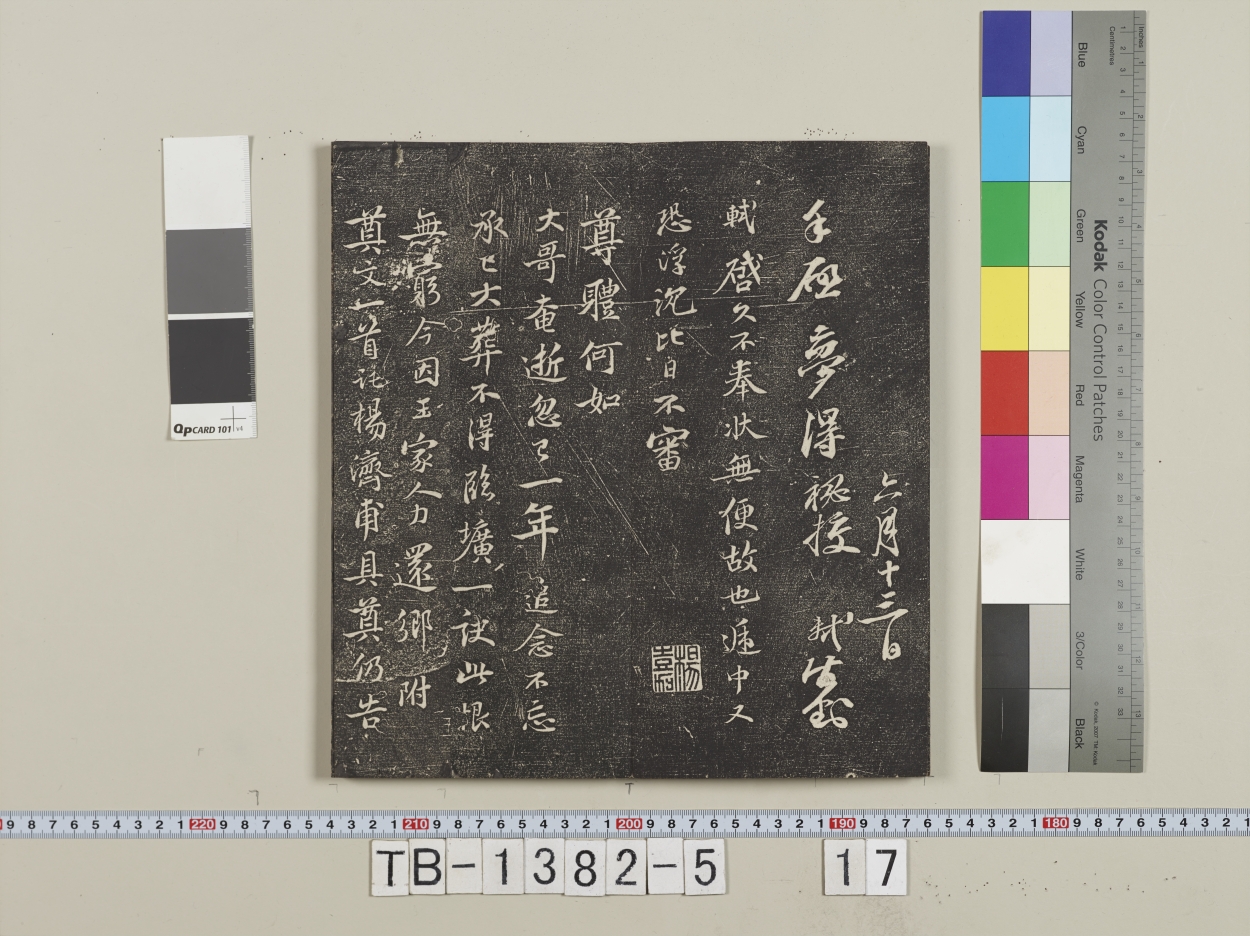 六月十三日
手啟夢得秘校 軾封
軾啓久不奉狀無便故也遞中又
恐浮沉比日不審
尊體何如
大哥奄逝忽已一年追念不忘
承已大葬不得臨壙一訣此恨
無窮今因王家人力還鄉附
奠文一首託楊濟甫具奠仍告
QPCARD 101 v4
Kodak Color Control Patches
Blue
Cyan
Green
Yellow
Red
Magenta
White
3/Color
Black
Inches
Centimetres
© Kodak, 2007 TM: Kodak
220
210
200
190
180
TB-1382-5
17